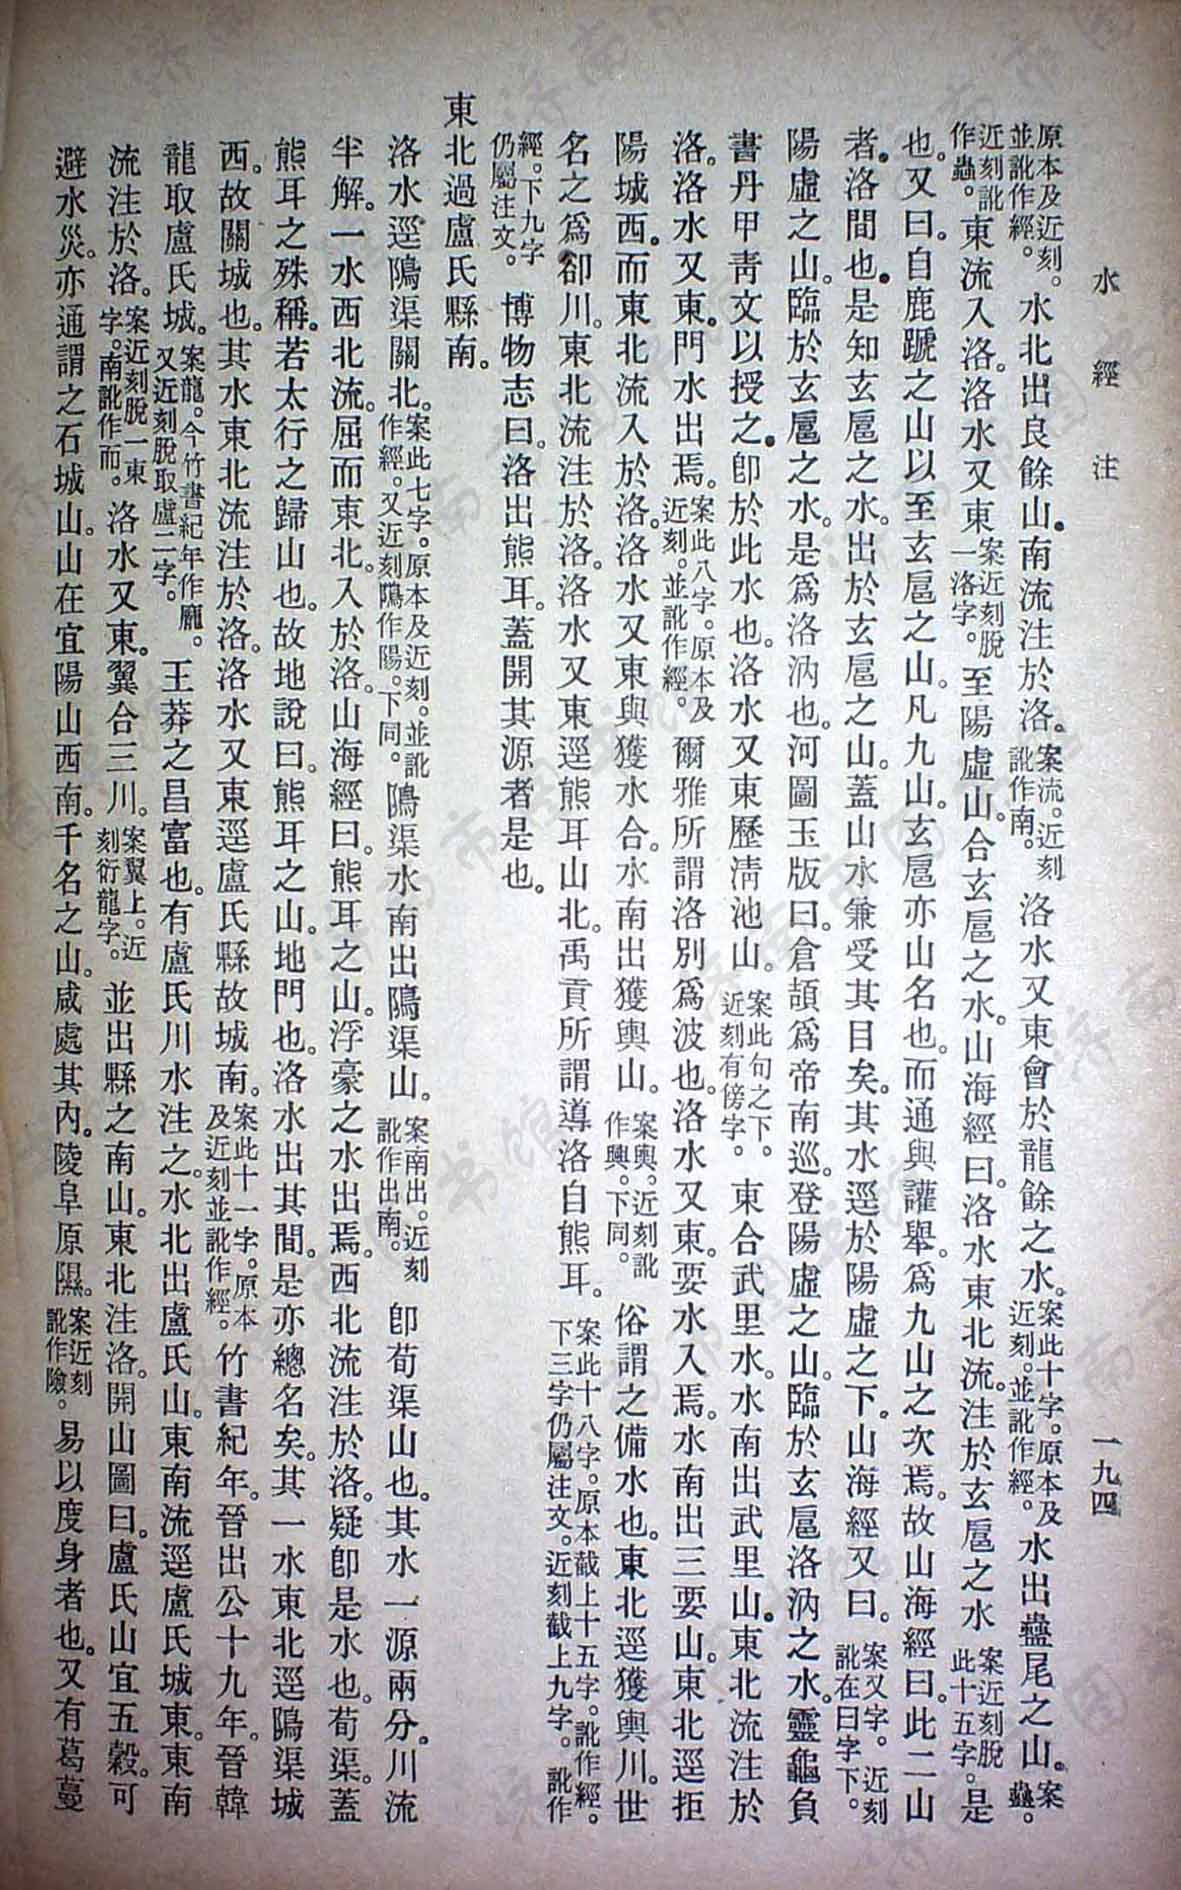 水經注 一九四
原本及近刻。並訛作經。水北出良餘山。南流注於洛。案流。近刻訛作南。洛水又東會於龍餘之水。案此十字。原本及近刻。並訛作經。水出蠱尾之山。案蠱。
近刻訛作蟲。東流入洛。洛水又東案近刻脫一洛字。至陽虛山。合玄扈之水。山海經曰。洛水東北流。注於玄扈之水案近刻脫此十五字。是
也。又曰。自鹿蹏之山以至玄扈之山。凡九山。玄扈亦山名也。而通與讙舉。爲九山之次焉。故山海經曰。此二山
者。洛間也。是知玄扈之水。出於玄扈之山。蓋山水兼受其目矣。其水逕於陽虛之下。山海經又曰。案又字。近刻訛在曰字下。
陽虛之山。臨於玄扈之水。是爲洛汭也。河圖玉版曰。倉頡爲帝南巡。登陽虛之山。臨於玄扈洛汭之水。靈龜負
書丹甲靑文以授之。卽於此水也。洛水又東歷淸池山。案此句之下。近刻有傍字。東合武里水。水南出武里山。東北流注於
洛。洛水又東。門水出焉。案此八字。原本及近刻。並訛作經。爾雅所謂洛別爲波也。洛水又東。要水入焉。水南出三要山。東北逕拒
陽城西。而東北流入於洛。洛水又東與獲水合。水南出獲輿山。案輿。近刻訛作興。下同。俗謂之備水也。東北逕獲輿川。世
名之爲卻川。東北流注於洛。洛水又東逕熊耳山北。禹貢所謂導洛自熊耳。案此十八字。原本截上十五字。訛作經。下三字仍屬注文。近刻截上九字。訛作
經。下九字仍屬注文。博物志曰。洛出熊耳。蓋開其源者是也。
東北過盧氏縣南。
洛水逕隝渠關北。案此七字。原本及近刻。並訛作經。又近刻隝作陽。下同。隝渠水南出隝渠山。案南出。近刻訛作出南。卽荀渠山也。其水一源兩分。川流
半解。一水西北流。屈而東北。入於洛。山海經曰。熊耳之山。浮豪之水出焉。西北流注於洛。疑卽是水也。荀渠。蓋
熊耳之殊稱。若太行之歸山也。故地說曰。熊耳之山。地門也。洛水出其間。是亦總名矣。其一水東北逕隝渠城
西。故關城也。其水東北流注於洛。洛水又東逕盧氏縣故城南。案此十一字。原本及近刻並訛作經。竹書紀年。晉出公十九年。晉韓
龍取盧氏城。案龍。今竹書紀年作龐。又近刻脫取盧二字。王莽之昌富也。有盧氏川水注之。水北出盧氏山。東南流逕盧氏城東。東南
流注於洛。案近刻脫一東字。南訛作而。洛水又東。翼合三川。案翼上。近刻衍龍字。並出縣之南山。東北注洛。開山圖曰。盧氏山宜五穀。可
避水災。亦通謂之石城山。山在宜陽山西南。千名之山。咸處其內。陵阜原隰。案近刻訛作險。易以度身者也。又有葛蔓